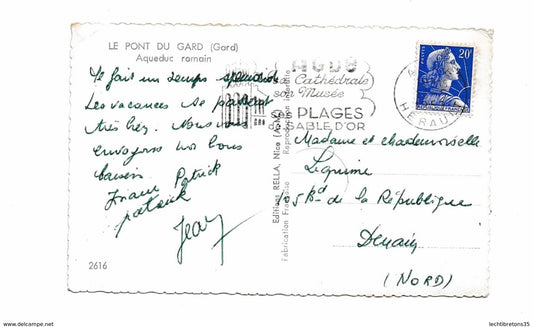 LE PONT DU GARD (Gard)
Aqueduc romain
Il fait un temps splendide
Les vacances se passent
très bien. Nous vous
envoyons nos bons
baisers.
Patrick
Jean
2616
Editions RELLA, Nice
Fabrication Française
Reproduction interdite
AGDE
sa Cathédrale
son Musée
ses PLAGES
SABLE D'OR
20f
HERAULT
Madame et Mademoiselle
Lequime
105 Bd de la République
Denain
(NORD)
lechtibretons35